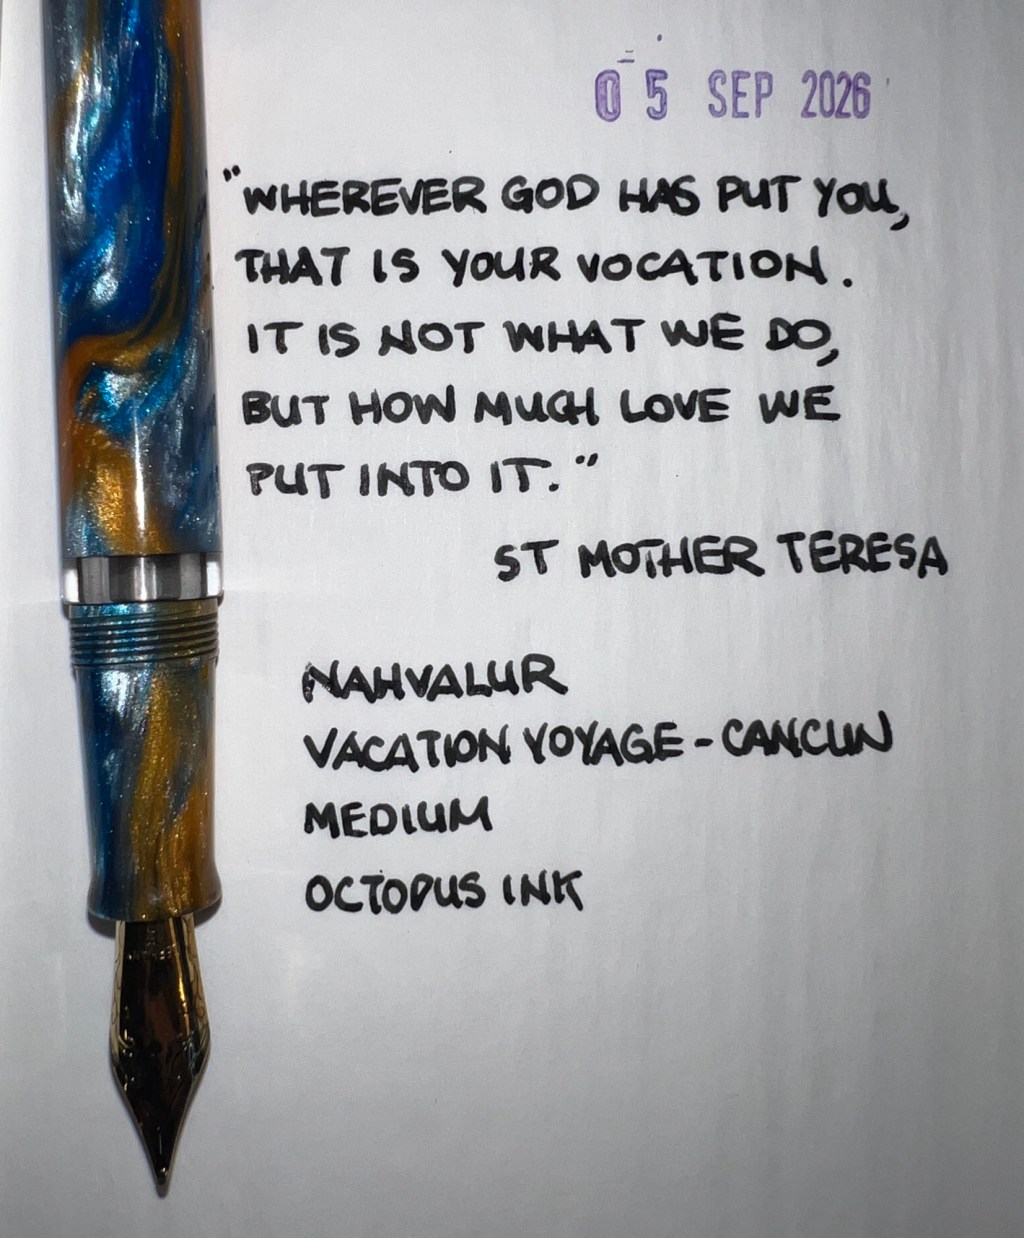 05 SEP 2026
"WHEREVER GOD HAS PUT YOU,
THAT IS YOUR VOCATION.
IT IS NOT WHAT WE DO,
BUT HOW MUCH LOVE WE
PUT INTO IT."
ST MOTHER TERESA
NAHVALUR
VACATION VOYAGE - CANCUN
MEDIUM
OCTOPUS INK